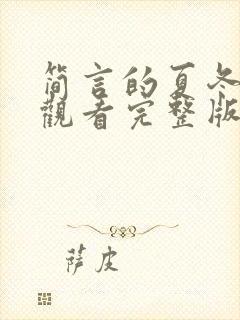 简言的夏冬
觀看完整版
萨皮